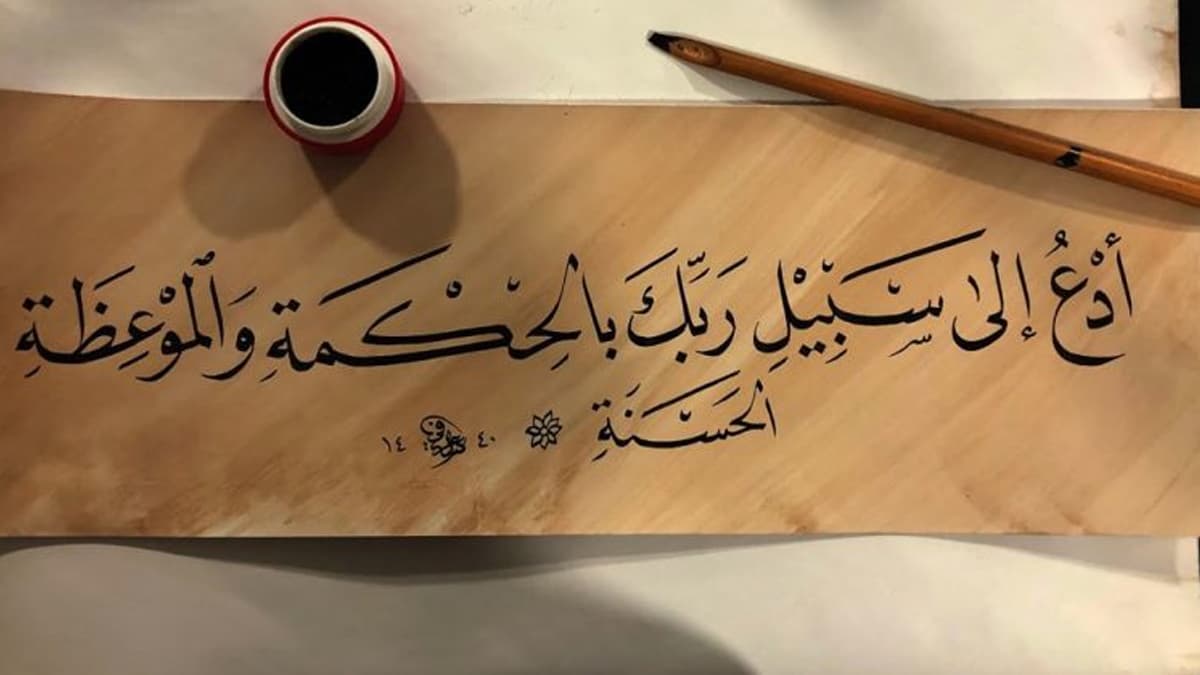 أدْعُ إلىٰ سَبِيْلِ رَبِّكَ بالحِكْمَةِ وَٱلمَوْعِظَةِ
الحَسَنَةِ ٤٠ ١٤